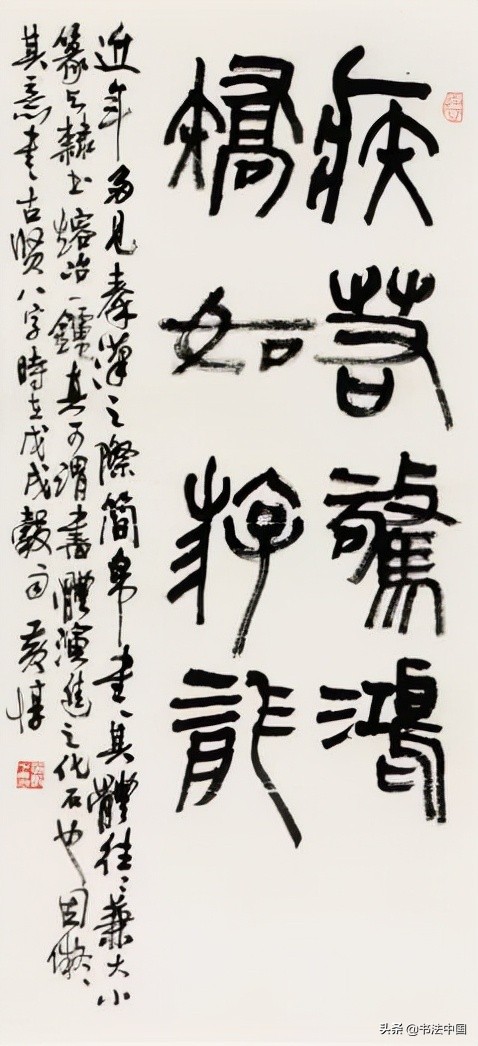 疾若驚鴻
矯如斿龍
近年多見秦漢之際簡帛書其體往〻兼大小
篆与隸書熔冶一鑪真可謂書體演進之化石也因儗
其意書古賢八字時在戊戌穀雨黃惇
头条 @书法中国